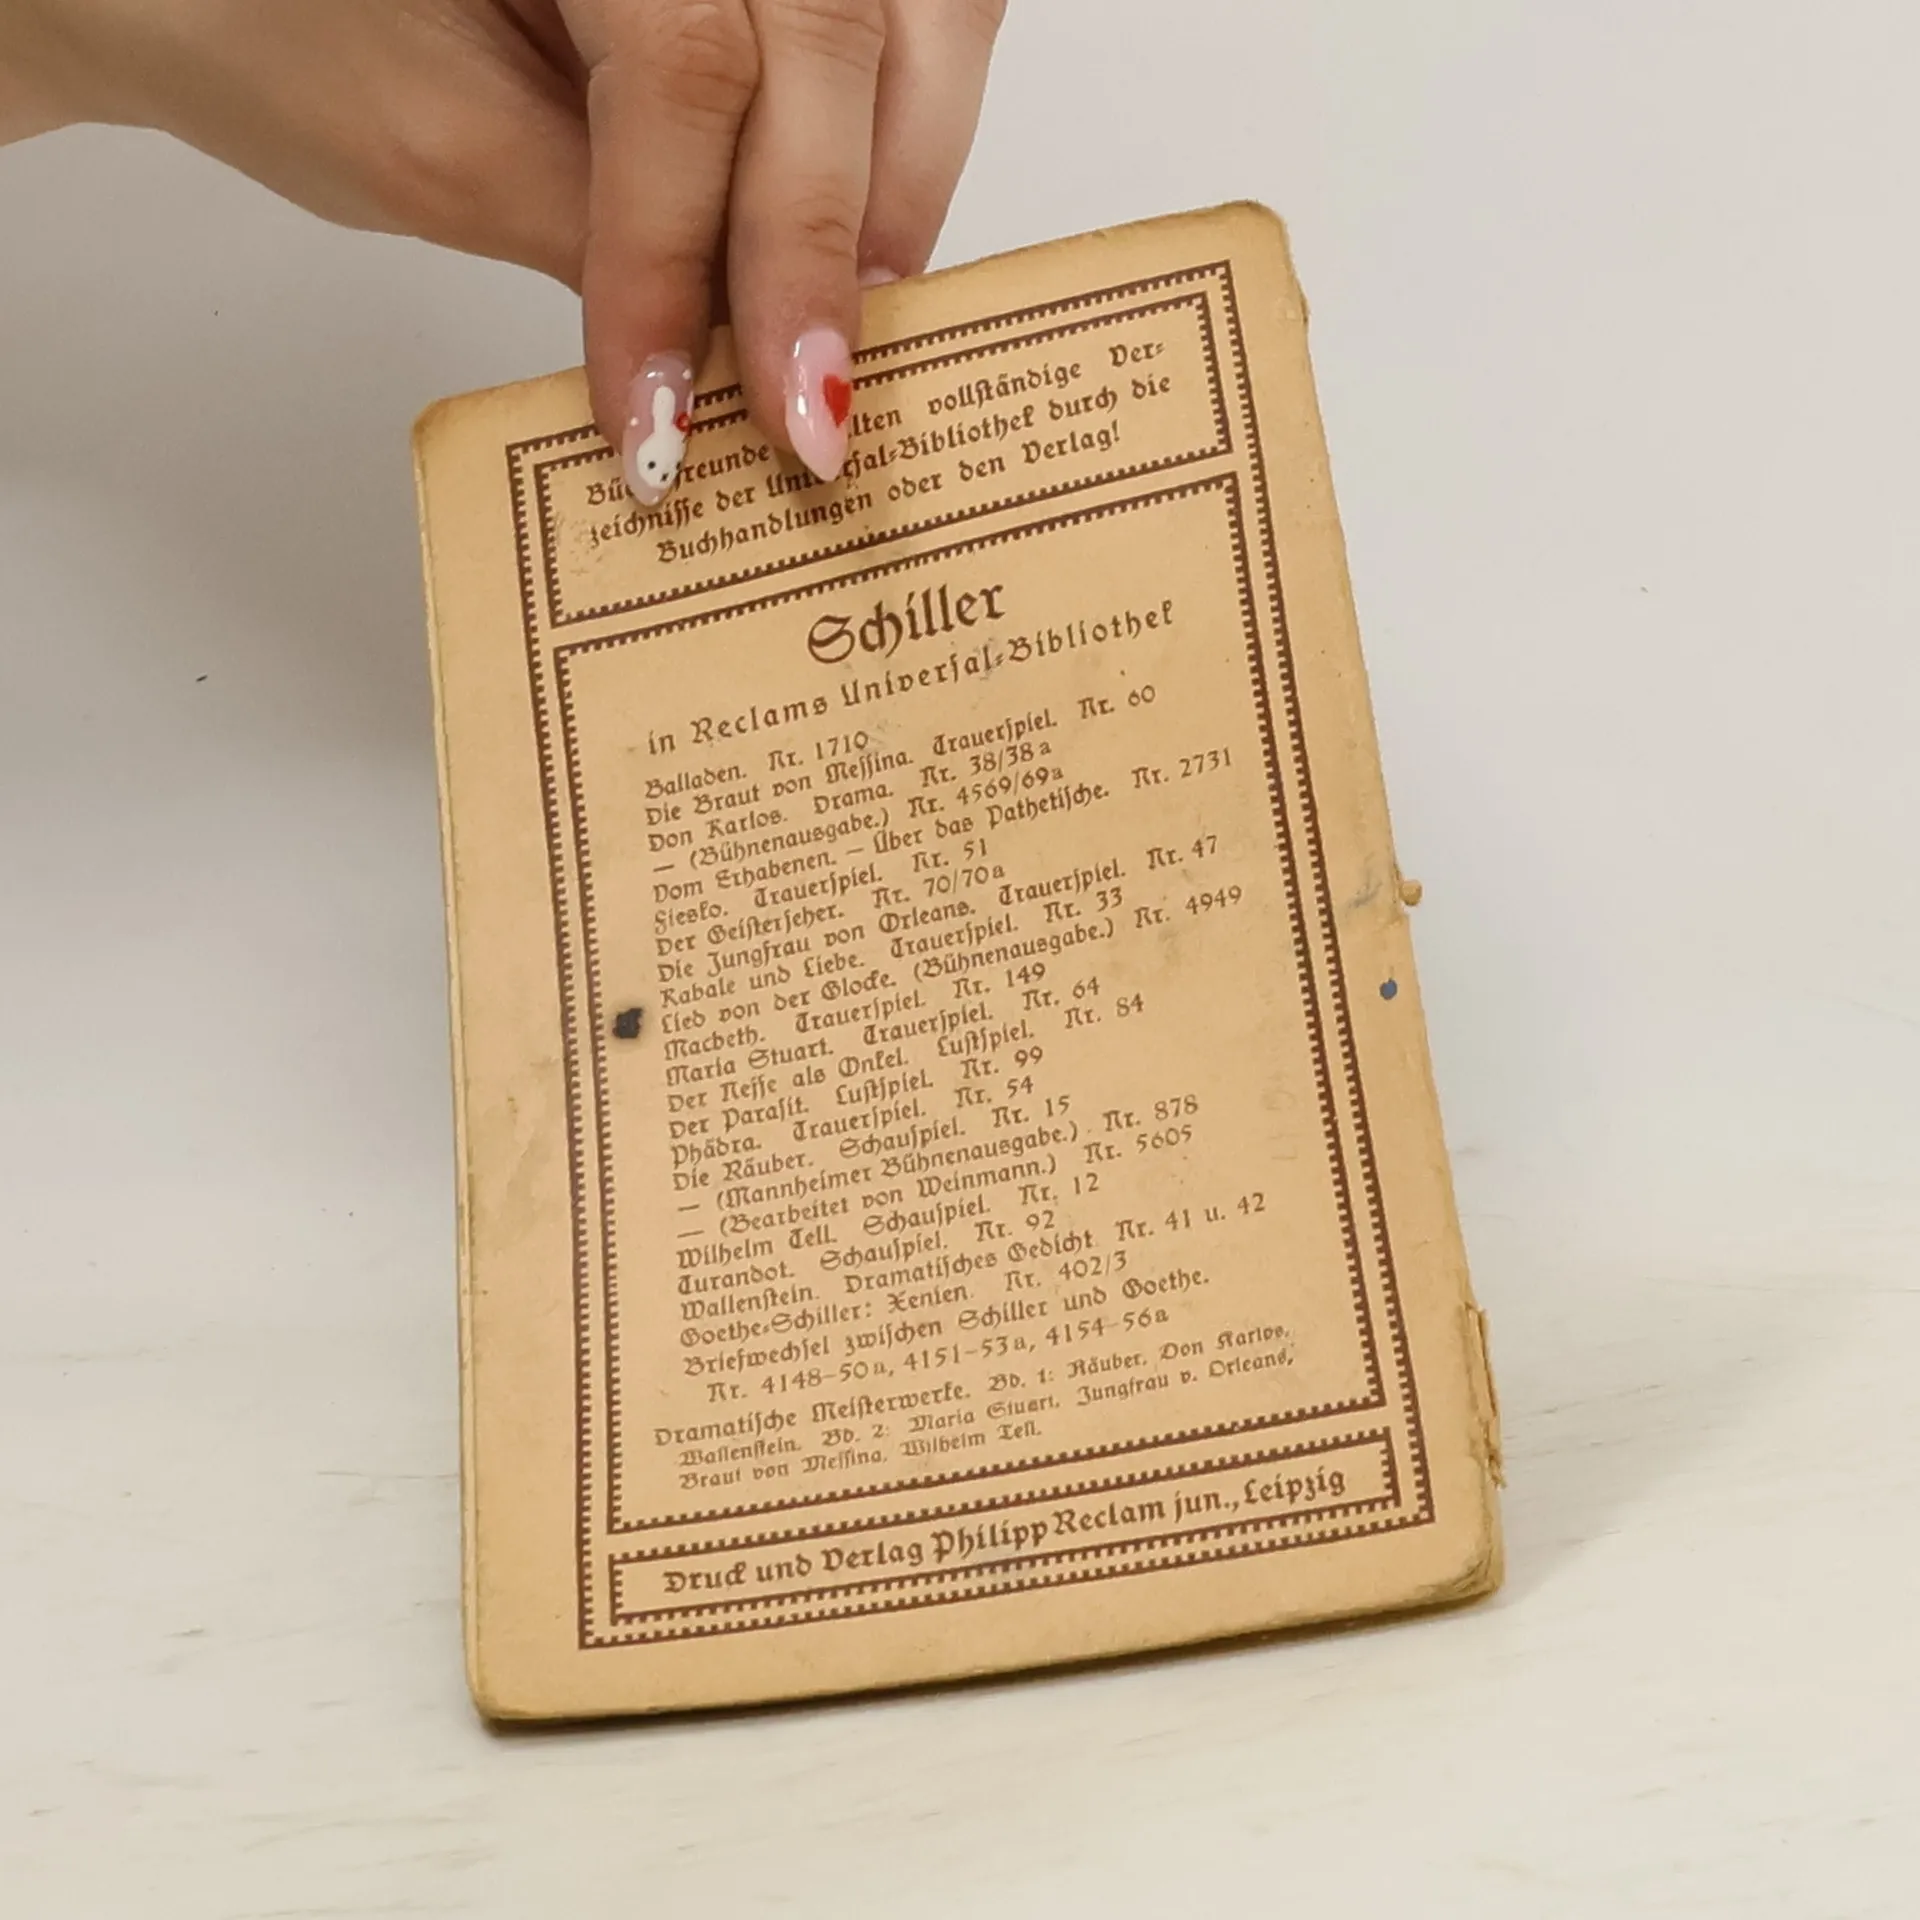 freunde lten vollständige Ver-
zeichnisse der Universal-Bibliothek durch die
Buchhandlungen oder den Verlag!
Schiller
in Reclams Universal-Bibliothek
Balladen. Nr. 1710
Die Braut von Messina. Trauerspiel. Nr. 60
Don Karlos. Drama. Nr. 38/38a
— (Bühnenausgabe.) Nr. 4569/69a
Vom Erhabenen. — Über das Pathetische. Nr. 2731
Fiesko. Trauerspiel. Nr. 51
Der Geisterseher. Nr. 70/70a
Die Jungfrau von Orleans. Trauerspiel. Nr. 47
Kabale und Liebe. Trauerspiel. Nr. 33
Lied von der Glocke. (Bühnenausgabe.) Nr. 4949
Macbeth. Trauerspiel. Nr. 149
Maria Stuart. Trauerspiel. Nr. 64
Der Neffe als Onkel. Lustspiel. Nr. 84
Der Parasit. Lustspiel. Nr. 99
Phädra. Trauerspiel. Nr. 54
Die Räuber. Schauspiel. Nr. 15
— (Mannheimer Bühnenausgabe.) Nr. 878
— (Bearbeitet von Weinmann.) Nr. 5605
Wilhelm Tell. Schauspiel. Nr. 12
Turandot. Schauspiel. Nr. 92
Wallenstein. Dramatisches Gedicht. Nr. 41 u. 42
Goethe-Schiller: Xenien. Nr. 402/3
Briefwechsel zwischen Schiller und Goethe.
Nr. 4148–50a, 4151–53a, 4154–56a
Dramatische Meisterwerke. Bd. 1: Räuber. Don Karlos.
Wallenstein. Bd. 2: Maria Stuart. Jungfrau v. Orleans,
Braut von Messina. Wilhelm Tell.
Druck und Verlag Philipp Reclam jun., Leipzig